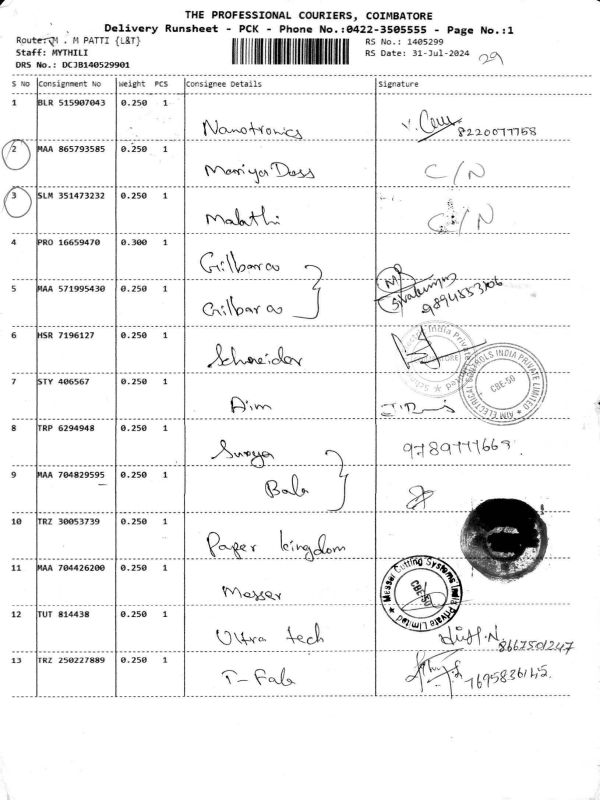 THE PROFESSIONAL COURIERS, COIMBATORE
Delivery Runsheet - PCK - Phone No.:0422-3505555 - Page No.:1
Route: M . M PATTI {L&T} RS No.: 1405299
Staff: MYTHILI RS Date: 31-Jul-2024 29
DRS No.: DCJB140529901
S No Consignment No Weight PCS Consignee Details Signature
1 BLR 515907043 0.250 1 Nanotronics 8220077758
2 MAA 865793585 0.250 1 Mariya Dass C/N
3 SLM 351473232 0.250 1 Malathi C/N
4 PRO 16659470 0.300 1 Gilbarco
5 MAA 571995430 0.250 1 Gilbarco Sivakumar 9894553106
6 HSR 7196127 0.250 1 Schneider
7 STY 406567 0.250 1 Aim AIM ELECTRICAL CONTROLS INDIA PRIVATE LIMITED CBE-50
8 TRP 6294948 0.250 1 Surya 9789777668
9 MAA 704829595 0.250 1 Bala
10 TRZ 30053739 0.250 1 Paper kingdom
11 MAA 704426200 0.250 1 Messer Messer Cutting Systems India Private Limited CBE-50
12 TUT 814438 0.250 1 Ultra tech 8667501247
13 TRZ 250227889 0.250 1 T-Fab 7695836145